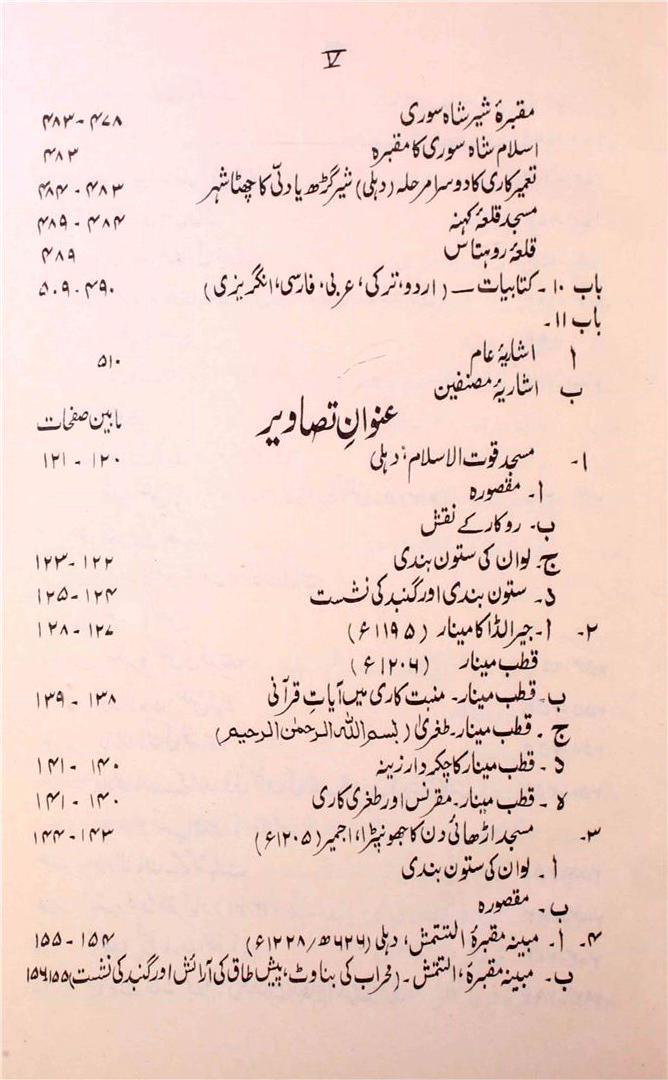 V
مقبرۂ شیر شاہ سوری ۴۷۸-۴۸۳
اسلام شاہ سوری کا مقبرہ ۴۸۳
تعمیر کاری کا دوسرا مرحلہ (دہلی) شیر گڑھ یا دلّی کا چھٹا شہر ۴۸۳-۴۸۴
مسجد قلعۂ کہنہ ۴۸۴-۴۸۹
قلعۂ روہتاس ۴۸۹
باب ۱۰۔ کتابیات — (اردو، ترکی، عربی، فارسی، انگریزی) ۴۹۰-۵۰۹
باب ۱۱۔
ا اشاریۂ عام ۵۱۰
ب اشاریۂ مصنفین
عنوانِ تصاویر مابین صفحات
۱۔ مسجد قوت الاسلام، دہلی ۱۲۰-۱۲۱
ا۔ مقصورہ
ب۔ روکار کے نقش
ج۔ لوان کی ستون بندی ۱۲۲-۱۲۳
د۔ ستون بندی اور گنبد کی نشست ۱۲۴-۱۲۵
۲۔ ا۔ جیرالڈا کا مینار (۱۱۹۵ء) ۱۲۷-۱۲۸
قطب مینار (۱۲۰۶ء)
ب۔ قطب مینار۔ منبت کاری میں آیاتِ قرآنی ۱۳۸-۱۳۹
ج۔ قطب مینار۔ طغریٰ (بسم اللہ الرحمٰن الرحیم)
د۔ قطب مینار کا چکر دار زینہ ۱۴۰-۱۴۱
ہ۔ قطب مینار۔ مقرنس اور طغریٰ کاری ۱۴۰-۱۴۱
۳۔ مسجد اڑھائی دن کا جھونپڑا، اجمیر (۱۲۰۵ء) ۱۴۳-۱۴۴
ا۔ لوان کی ستون بندی
ب۔ مقصورہ
۴۔ ا۔ مبینہ مقبرۂ التتمش، دہلی (۶۲۶ھ/۱۲۲۸ء) ۱۵۴-۱۵۵
ب۔ مبینہ مقبرۂ، التمش۔ (محراب کی بناوٹ، پیش طاق کی آرائش اور گنبد کی نشست) ۱۵۵-۱۵۶